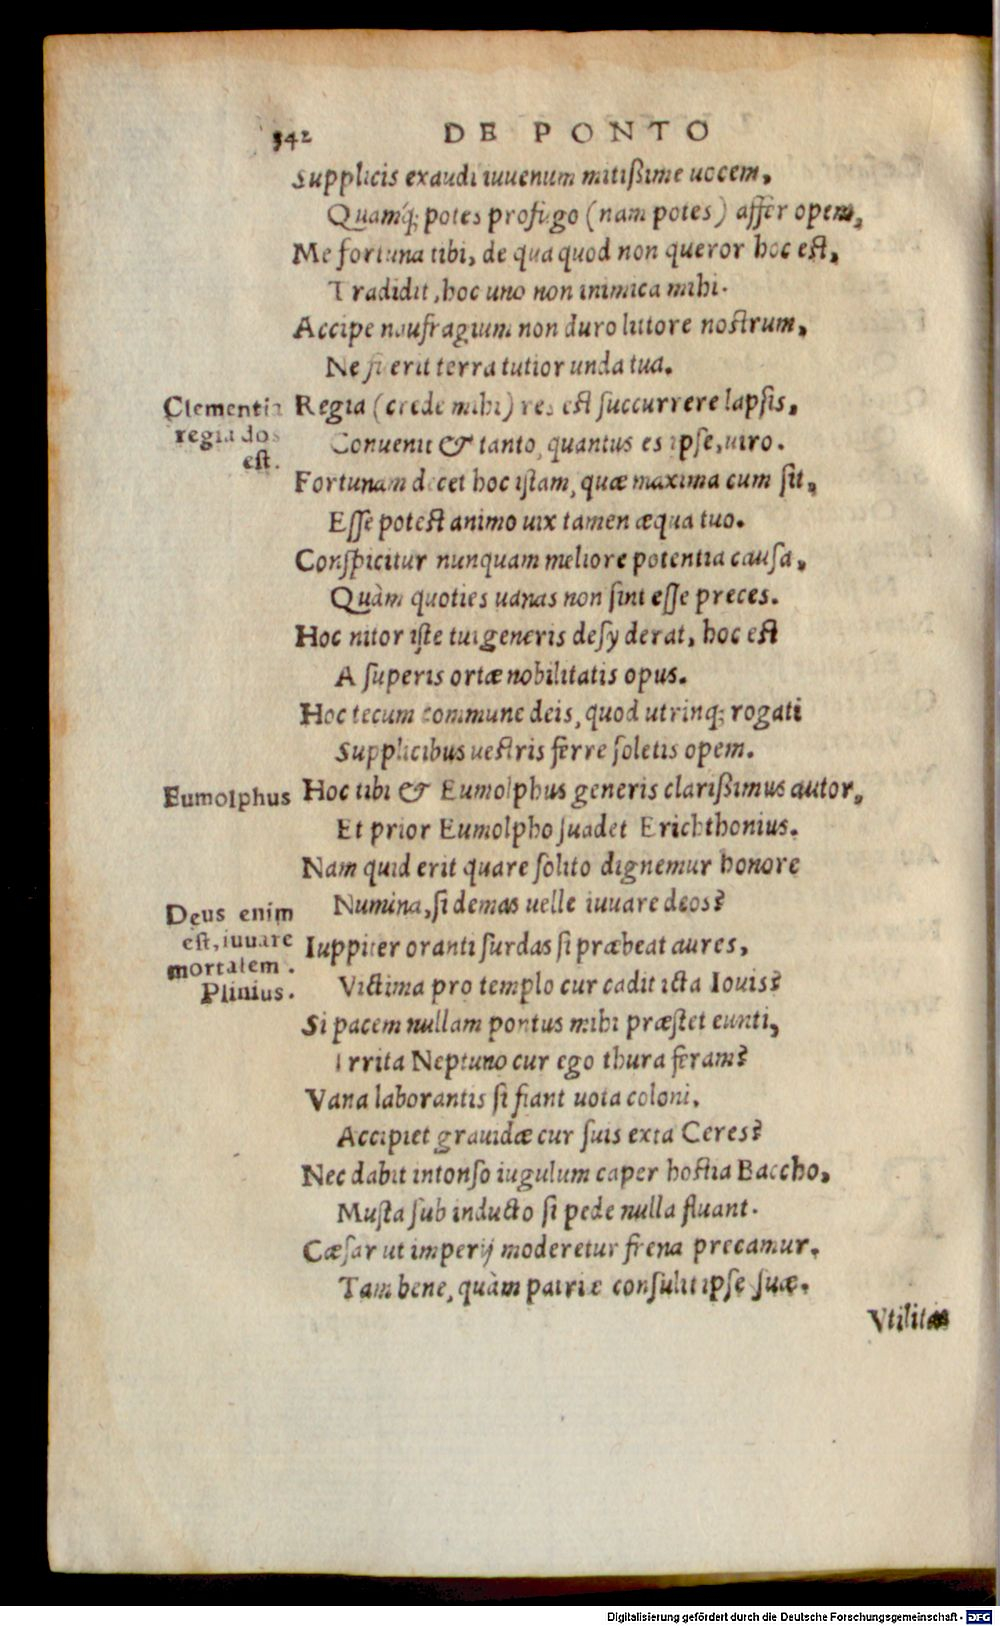 342 DE PONTO
Supplicis exaudi iuuenum mitißime uocem,
Quamq́; potes profugo (nam potes) affer opem,
Me fortuna tibi, de qua quod non queror hoc est,
Tradidit, hoc uno non inimica mihi.
Accipe naufragium non duro littore nostrum,
Ne ſi erit terra tutior unda tua.
Clementia
regia dos
est.
Regia (crede mihi) res est ſuccurrere lapſis,
Conuenit & tanto, quantus es ipſe, uiro.
Fortunam decet hoc iſtam, quæ maxima cum ſit,
Eſſe potest animo uix tamen æqua tuo.
Conſpicitur nunquam meliore potentia cauſa,
Quàm quoties uanas non ſinit eſſe preces.
Hoc nitor iſte tui generis deſyderat, hoc est
A ſuperis ortæ nobilitatis opus.
Hoc tecum commune deis, quod utrinq; rogati
Supplicibus uestris ferre ſoletis opem.
Eumolphus
Hoc tibi & Eumolphus generis clarißimus autor,
Et prior Eumolpho ſuadet Erichthonius.
Nam quid erit quare ſolito dignemur honore
Numina, ſi demas uelle iuuare deos?
Deus enim
est, iuuare
mortalem.
Plinius.
Iuppiter oranti ſurdas ſi præbeat aures,
Victima pro templo cur cadit icta Iouis?
Si pacem nullam pontus mihi præſtet eunti,
Irrita Neptuno cur ego thura feram?
Vana laborantis ſi fiant uota coloni,
Accipiet grauidæ cur ſuis exta Ceres?
Nec dabit intonſo iugulum caper hostia Baccho,
Muſta ſub inducto ſi pede nulla fluant.
Cæſar ut imperij moderetur frena precamur,
Tam bene, quàm patriæ conſulit ipſe ſuæ.
Vtilitas
Digitalisierung gefördert durch die Deutsche Forschungsgemeinschaft - DFG